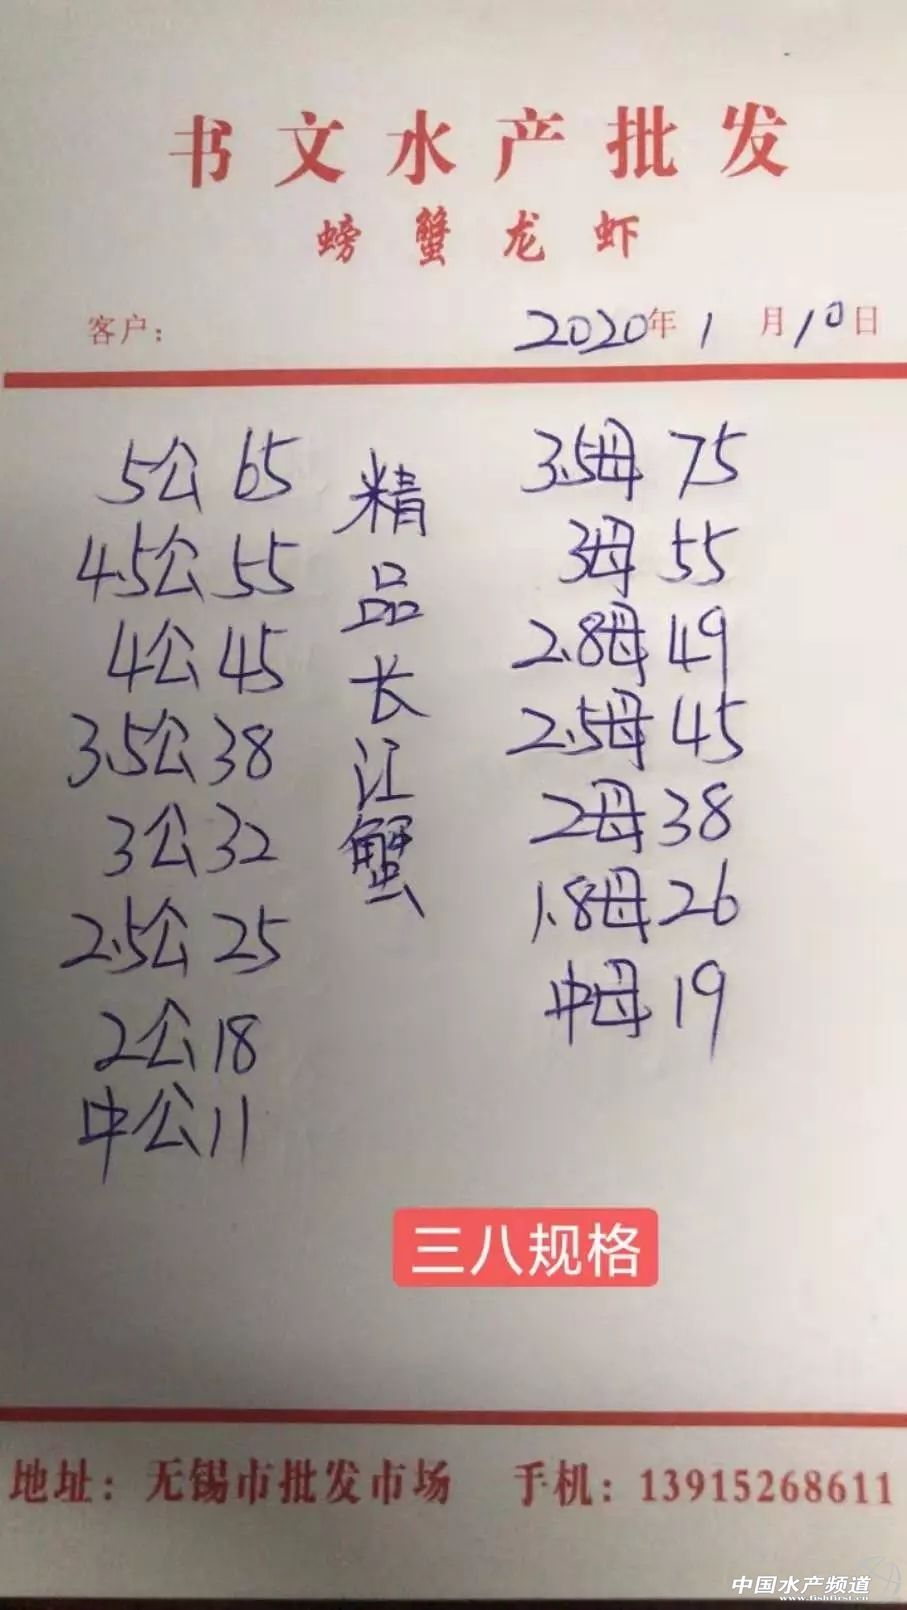 书文水产批发
螃蟹龙虾
客户：
2020年1月10日
5公 65
4.5公 55
4公 45
3.5公 38
3公 32
2.5公 25
2公 18
中公 11
精品长江蟹
3.5母 75
3母 55
2.8母 49
2.5母 45
2母 38
1.8母 26
中母 19
三八规格
地址：无锡市批发市场 手机：13915268611
中国水产频道
www.fishfirst.cn